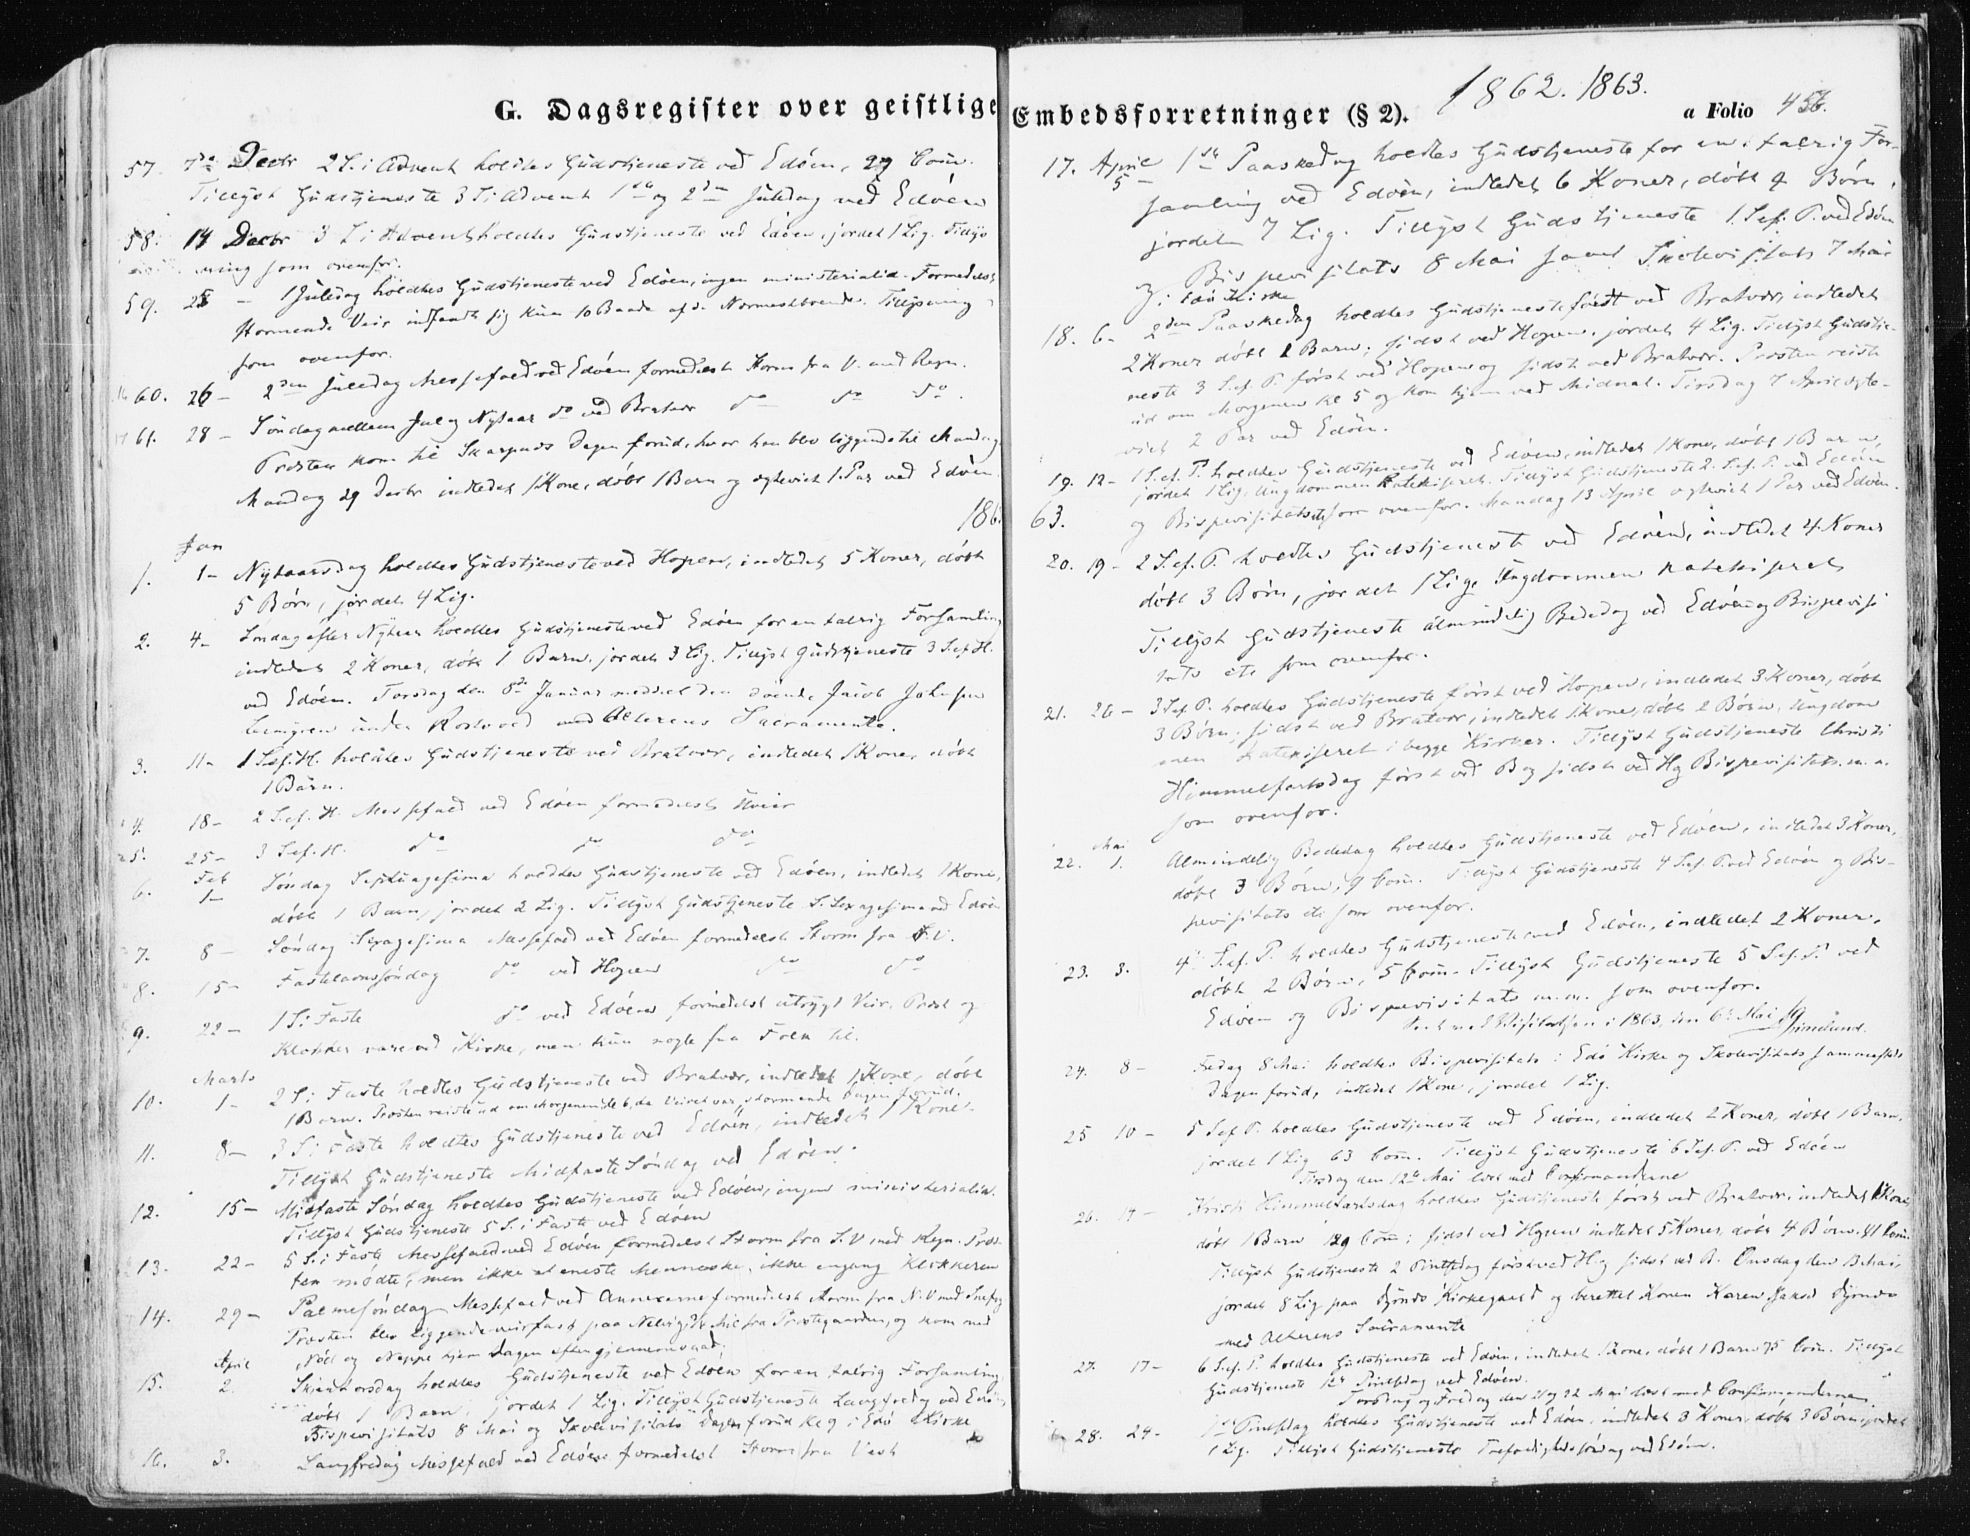 G. Dagsregister over geistlige Embedsforretninger (§ 2). 1862. 1863.
a Folio 456.
57. 7de Decbr 2 S. i Advent holdtes Gudstjeneste ved Edöen, 29 Com.
Tillyst Gudstjeneste 3 S. i Advent 1ste og 2den Juledag ved Edöen
58. 14 Decbr 3 S. i Advent holdtes Gudstjeneste ved Edöen, jordet 1 Lig. Tillys
ning som ovenfor.
59. 25 - 1 Juledag holdtes Gudstjeneste ved Edöen, ingen ministerialia. Formedelst
stormende Veir indfandt sig kun 10 Baade af de Nærmestboende. Tillysning
som ovenfor.
60. 26 - 2den Juledag Messefald ved Edöen formedelst Storm fra V. med Regn.
61. 28 - Söndag mellem Jul og Nytaar do ved Bratvær do do do.
Præsten kom til Skarpnæs Dagen forud, hvor han blev liggende til Mandag
Mandag 29 Decbr indledet 1 Kone, döbt 1 Barn og egteviet 1 Par ved Edöen.
1863.
Jan
1. 1- Nytaarsdag holdtes Gudstjeneste ved Hopen, indledet 5 Koner, döbt
5 Börn, jordet 4 Lig.
2. 4- Söndag efter Nytaar holdtes Gudstjeneste ved Edöen for en talrig Forsamling
indledet 2 Koner, döbt 1 Barn, jordet 3 Lig. Tillyst Gudstjeneste 3 S. ef. H.
ved Edöen. Torsdag den 8de Januar meddelt den döende Jacob Johnsen
under Rosvold med Alterens Sacramente.
3. 11- 1 S. ef. H. holdtes Gudstjeneste ved Bratvær, indledet 1 Kone, döbt
1 Barn.
4. 18- 2 S. ef. H. Messefald ved Edöen formedelst Uveir
5. 25- 3 S. ef. H. do do do
Feb
6. 1- Söndag Septuagesima holdtes Gudstjeneste ved Edöen, indledet 1 Kone,
döbt 1 Barn, jordet 2 Lig. Tillyst Gudstjeneste S. Sexagesima ved Edöen
7. 8- Söndag Sexagesima Messefald ved Edöen formedelst Storm fra S.V.
8. 15- Fastelavnssöndag do ved Hopen do do
9. 22- 1 S. i Faste do ved Edöen formedelst utrygt Veir. Præst og
Klokker vare ved Kirke, men kun nogle faa Folk til.
Marts
10. 1- 2 S. i Faste holdtes Gudstjeneste ved Bratvær, indledet 1 Kone, döbt
1 Barn. Præsten reiste ud om Morgenen Kl 6, da Veiret var stormende Dagen forud.
11. 8- 3 S. i Faste holdtes Gudstjeneste ved Edöen, indledet 1 Kone.
Tillyst Gudstjeneste Midfaste Söndag ved Edöen.
12. 15- Midfaste Söndag holdtes Gudstjeneste ved Edöen, ingen ministerialia.
Tillyst Gudstjeneste 5 S. i Faste ved Edöen
13. 22- 5 S. i Faste Messefald ved Edöen formedelst Storm fra S.V. med Regn. Præs-
ten mödte, men ikke et eneste Menneske, ikke engang Klokkeren
14. 29- Palmesöndag Messefald ved Annexerne formedelst Storm fra N.V. med Snefog
Præsten blev liggende veirfast paa fra Præstegaarden, og kom med
Nöd og Neppe hjem Dagen efter gjennemvaad.
April
15. 2. Skjærtorsdag holdtes Gudstjeneste ved Edöen for en talrig Forsamling
döbt 1 Barn, jordet 1 Lig. Tillyst Gudstjeneste Langfredag ved Edöen
Bispevisitats 8 Mai og Skolevisitats Dagen forud Kl 9 i Edö Kirke
16. 3. Langfredag Messefald ved Edöen formedelst Storm fra Vest
17. April 5- 1ste Paaskedag holdtes Gudstjeneste for en talrig For-
samling ved Edöen, indledet 6 Koner, döbt 9 Börn,
jordet 7 Lig. Tillyst Gudstjeneste 1 S. ef. P. ved Edöen
og Bispevisitats 8 Mai samt Skolevisitats 7 Mai
i Edö Kirke
18. 6- 2den Paaskedag holdtes Gudstjeneste först ved Bratvær, indledet
2 Koner döbt 1 Barn; sidst ved Hopen, jordet 4 Lig. Tillyst Gudstje-
neste 3 S. ef. P. först ved Hopen og sidst ved Bratvær. Præsten reiste
ud om Morgenen Kl 5 og kom hjem ved Midnat. Tirsdag 7 April egte-
viet 2 Par ved Edöen.
19. 12- 1 S. ef. P. holdtes Gudstjeneste ved Edöen, indledet 1 Kone, döbt 1 Barn,
jordet 1 Lig, Ungdommen katekiseret. Tillyst Gudstjeneste 2 S. ef. P. ved Edöen
og Bispevisitats som ovenfor. Mandag 13 April egteviet 1 Par ved Edöen.
20. 19- 2 S. ef. P. holdtes Gudstjeneste ved Edöen, indledet 4 Koner
döbt 3 Börn, jordet 1 Lig. Ungdommen katekiseret
Tillyst Gudstjeneste almindelig Bededag ved Edöen og Bispevisi
tats etc som ovenfor.
21. 26- 3 S. ef. P. holdtes Gudstjeneste först ved Hopen, indledet 3 Koner, döbt
3 Börn; sidst ved Bratvær, indledet 1 Kone, döbt 2 Börn, Ungdom
men katekiseret i begge Kirker. Tillyst Gudstjeneste Christi
Himmelfartsdag först ved B og sidst ved H og Bispevisitats m.m.
som ovenfor.
Mai
22. 1. Almindelig Bededag holdtes Gudstjeneste ved Edöen, indledet 3 Koner,
döbt 3 Börn, 9 Com. Tillyst Gudstjeneste 4 S. ef. P. ved Edöen og Bis-
pevisitats etc som ovenfor.
23. 3. 4 S. ef. P. holdtes Gudstjeneste ved Edöen, indledet 2 Koner,
döbt 2 Börn, 5 Com. Tillyst Gudstjeneste 5 S. ef. P. ved
Edöen og Bispevisitats m.m. som ovenfor.
Visitatsen i 1863, den 6te Mai
24. 8- Fredag 8 Mai holdtes Bispevisitats i Edö Kirke og Skolevisitats sammesteds
Dagen forud, indledet 1 Kone, jordet 1 Lig.
25 10- 5 S. ef. P. holdtes Gudstjeneste ved Edöen, indledet 2 Koner, döbt 1 Barn,
jordet 1 Lig 63 Com. Tillyst Gudstjeneste 6 S. ef. P. ved Edöen
Tirsdag den 12te Mai læst med Confirmanderne
26. 14- Kristi Himmelfartsdag holdtes Gudstjeneste först ved Bratvær, indledet 1 Kone,
döbt 1 Barn 129 Com; sidst ved Hopen indledet 5 Koner, döbt 4 Börn. 41 Com.
Tillyst Gudstjeneste 2 Pintsedag först ved H og sidst ved B. Onsdag den 13 Mai,
jordet 8 Lig paa Kirkegaard og berettet Konen Karen
med Alterens Sacramente
27. 17- 6 S. ef. P. holdtes Gudstjeneste ved Edöen, indledet 1 Kone, döbt 1 Barn 75 Com. Tillyst
Gudstjeneste 1ste Pintsedag ved Edöen.
Torsdag og Fredag den 21 og 22 Mai læst med Confirmanderne
28. 24- 1ste Pintsedag holdtes Gudstjeneste ved Edöen, indledet 3 Koner, döbt 3 Börn, jordet
1 Lig. Tillyst Gudstjeneste Trefoldighedssöndag ved Edöen.